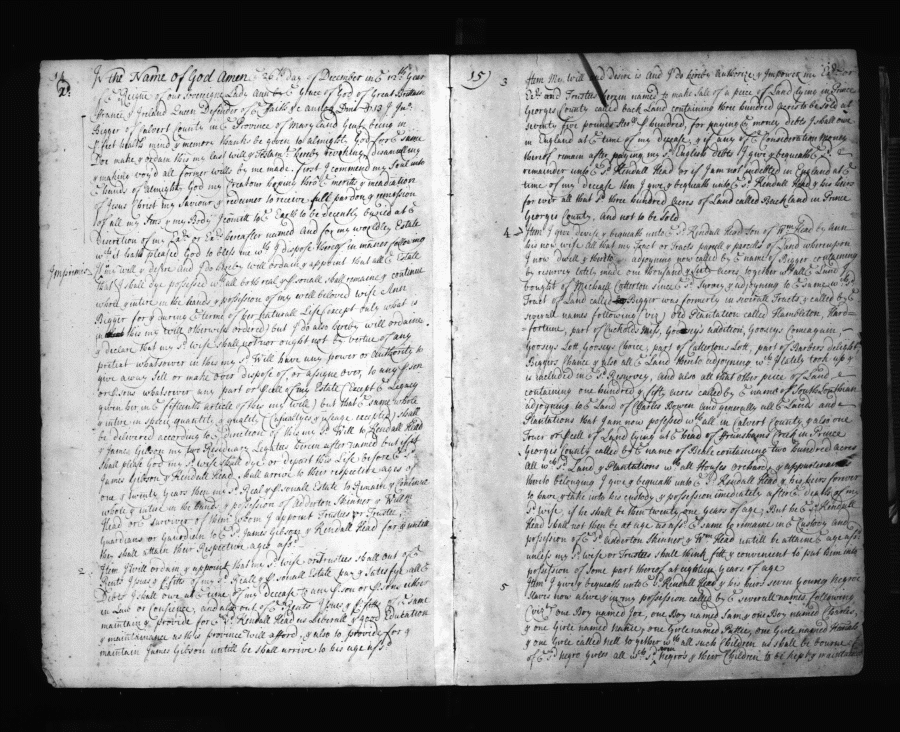 14
In the Name of God Amen ye 26th day of December in ye 12th Year
of ye Reigne of our Sovereigne Lady Ann by ye Grace of God of Great Brittain
France & Ireland Queen Defender of ye Faith &c
Bigger of Calvert County in ye Province of Maryland Gent being in
health mind & memory thanks be given to almighty God for ye same
Doe make & ordain this my last will & hereby revoking disannulling
& making voyd all former wills by me made, first I commend my Soul into
ye hands of Almighty God my Creatour hopeing thro' ye meritts & mediation
of Jesus Christ my Saviour & redeemer to receive full pardon & remission
of all my Sins & my Body I comitt to ye Earth to be decently buried at ye
discretion of my Exr or Exx hereafter named And for my worldly Estate
wch it hath pleased God to bless me wth I dispose thereof in manner following
Imprimis my will & desire And I do hereby will ordaine & appoint that all ye Estate
that I shall dye possessed wth all both reall & psonall shall remaine & continue
whole & intire in the hands & possession of my well beloved wife Anne
Bigger for & during ye terme of her naturall Life (except only what is
in this my will otherwise ordered) but I do also hereby will ordaine
& declare that my sd wife shall not nor ought not by vertue of any
pretext whatsoever in this my sd Will have any power or Authority to
give away sell or make over dispose of or assigne over to any pson
or psons whatsoever any part or pcell of my Estate (Except ye Legacy
given her in ye fifteenth article of this my will) but that ye same whole
& intire in specie quantity & quality (casualtyes & usage excepted) shall
be delivered according to ye direction of this my sd Will to Rendall Head
& James Gibson my two Residuary Legatees herein after named but if it
shall please God my sd wife shall dye or depart this Life before ye sd
James Gibson & Rendall Head shall arrive to their respective ages of
one & twenty Years then my sd Real & psonall Estate to Remain & Continue
whole & intire in the hands & possession of Adderton Skinner & Willm
Head or ye survivor of them whom I appoint Trustees or Trustee,
Guardians or Guardian to ye sd James Gibson & Rendall Head for & untill
they shall attain their Respective ages aforsd
2 Item I will ordain & appoint that my sd wife or Trustees shall out of ye
Rents Issues & pfitts of my sd Reall & psonall Estate pay & satisfye all ye
Debts I shall owe at ye time of my decease to any pson or psons either
in Law or Consience, and also out of ye Rents Issues & pfitts of ye same
maintain & provide for ye sd Rendall Head in Liberall & good Education
& maintainance as this province will afford, & also to provide for &
maintain James Gibson untill he shall arrive to his age aforsd
15)
3 Item My will and desire is and I do hereby Authorize & Impower my Exr or
Exx and Trustees herein named to make sale of a piece of Land lying in Prince
Georges County called Back Land containing three hundred acres to be sold at
seventy five pounds ster p hundred, for paying ye money debts I shall owe
in England at ye time of my decease, & if any of ye Consideration Money
thereof remain after paying my sd English debts I give & bequeath ye sd
remainder unto ye sd Rendall Head or if I am not indebted in England at ye
time of my decease then I give & bequeath unto ye sd Rendall Head & his heirs
for ever all that sd three hundred Acres of Land called Backland in Prince
Georges County, and not to be sold
4 Item I give devise & bequeath unto ye sd Rendall Head son of Wm Head by Ann
his now wife all that my Tract or tracts parcell & parcells of Land whereupon
I now dwell & thereto adjoyning now called by ye name of Bigger containing
by resurvey lately made one thousand & sixty acres, together wth all ye Land I
bought of Michaell Catterton since ye sd Survey & adjoyning to ye same wch sd
Tract of Land called Bigger was formerly in severall Tracts & called by ye
severall names following (viz) old Plantation called Hambleton, Hard-
fortune, part of Cuckolds Miss, Gooseys addition, Gooseys Comeagaine,
Gooseys Lott, Gooseys Choice, part of Cattertons Lott, part of Barbers delight
Biggers Chance, & also all ye Land thereto adjoyning wch I lately took up &
is included in ye sd Resurvey, and also all that other piece of Land
containing one hundred & fifty acres called by ye name of South
adjoyning to ye Land of Charles Bowen and generally all ye Lands and
Plantations that I am now possessed wth all in Calvert County & also one
Tract or pcell of Land lying at ye head of Creek in Prince
Georges County called by ye name of containing two hundred acres
all wch sd Land & Plantations wth all Houses Orchards & appurtenances
thereto belonging I give & bequeath unto ye sd Rendall Head & his heirs forever
to have & take into his custody & possession imediately after ye death of my
sd wife, if he shall be then twenty one years of age, But he ye sd Rendall
Head shall not then be at age as afsd ye same to remaine in ye Custody and
possession of ye sd Adderton Skinner & Wm Head untill he attaine ye age afsd
unless my sd wife or Trustees shall think fitt & convenient to put him into
possession of some part thereof at eighteen years of age
5 Item I give & bequeath unto ye sd Rendall Head & his heirs seven young Negroe
Slaves now alive & in my possession called by ye severall names following
(viz) one Boy named Joe, one Boy named Sam, & one Boy named Charles,
& one Girle named Nanne, one Girle named Pattie, one Girle named Hannah
& one Girle called Nell together wth all such Children as shall be bourne
of ye sd Negro Girles all wch sd negro's & their Children to be kept & maintained